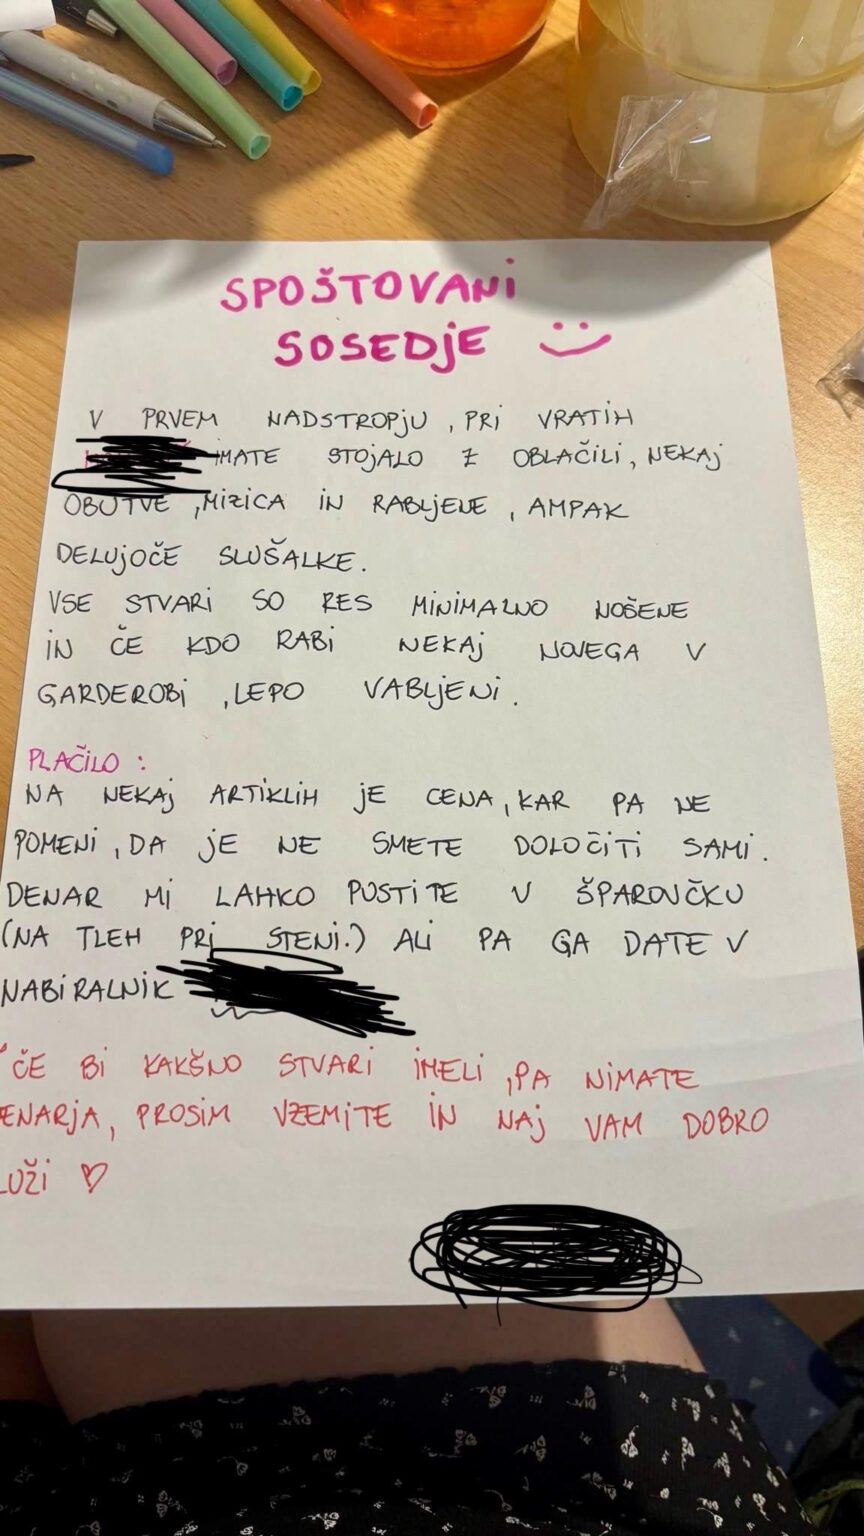 SPOŠTOVANI
SOSEDJE
V PRVEM NADSTROPJU, PRI VRATIH
IMATE STOJALO Z OBLAČILI, NEKAJ
OBUTVE, MIZICA IN RABLJENE, AMPAK
DELUJOČE SLUŠALKE.
VSE STVARI SO RES MINIMALNO NOŠENE
IN ČE KDO RABI NEKAJ NOVEGA V
GARDEROBI, LEPO VABLJENI.
PLAČILO:
NA NEKAJ ARTIKLIH JE CENA, KAR PA NE
POMENI, DA JE NE SMETE DOLOČITI SAMI.
DENAR MI LAHKO PUSTITE V ŠPAROVČKU
(NA TLEH PRI STENI.) ALI PA GA DATE V
NABIRALNIK
ČE BI KAKŠNO STVARI IMELI, PA NIMATE
ENARJA, PROSIM VZEMITE IN NAJ VAM DOBRO
LUŽI ♡